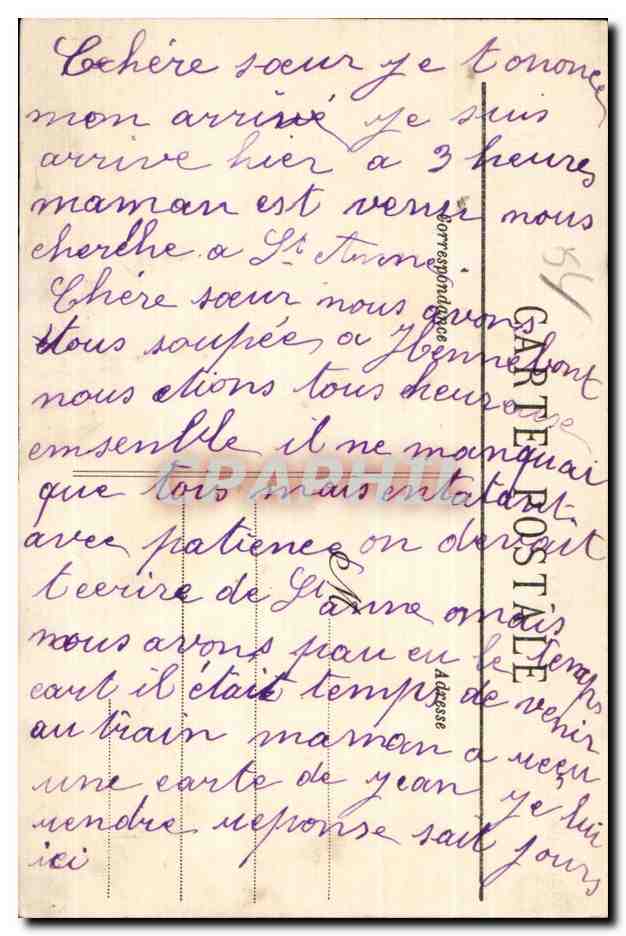 Chére sœur je tononce
mon arrivé je suis
arrive hier a 3 heures
maman est venu nous
cherche a St Anne
Chére sœur nous avons
tous soupée a Hennebont
nous etions tous heurouse
emsenble il ne manquai
que tois mais entatant
avec patience on devait
tecrire de St anne mais
nous avons pau eu le temps
cart il était temps de venir
au train maman a reçu
une carte de jean je lui
rendre reponse sait jours
ici
CARTE POSTALE
Correspondance
Adresse
M
54
CPAPHIL